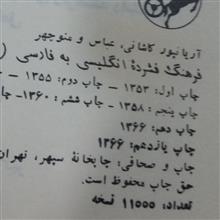 آریانپور کاشانی، عباس و منوچهر
فرهنگ فشردهٔ انگلیسی به فارسی (
چاپ اول: ۱۳۵۳ – چاپ دوم: ۱۳۵۵ –
چاپ پنجم: ۱۳۵۸ – چاپ ششم: ۱۳۶۰–
چاپ دهم: ۱۳۶۶
چاپ یازدهم: ۱۳۶۶
چاپ و صحافی: چاپخانهٔ سپهر، تهران
حق چاپ محفوظ است.
تعداد: ۱۱۰۰۰ نسخه